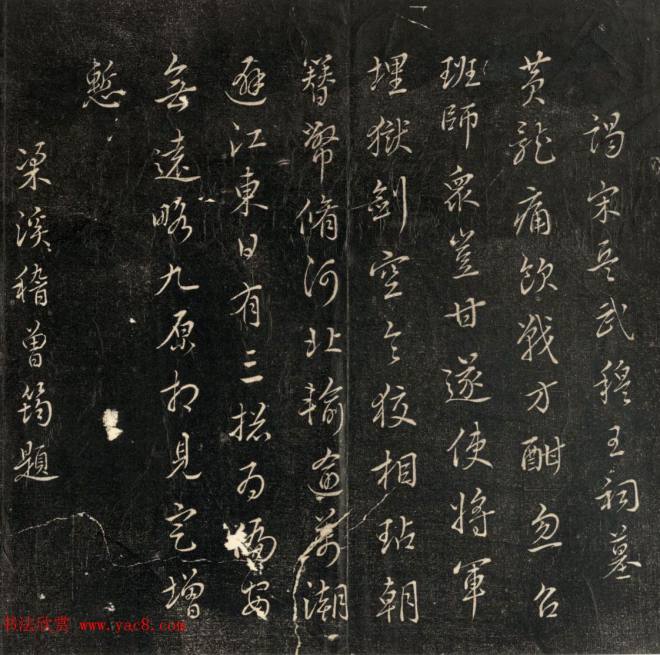 謁宋岳武穆王祠墓
黄龍痛飲戰方酣忽召
班師衆豈甘遂使將軍
埋獄劍空令狡相玷朝
簪幣脩河北輸逾萬潮
避江東日有三捴為偏安
無遠略九原相見定增
慙
梁溪嵇曾筠題
书法欣赏 www.yac8.com